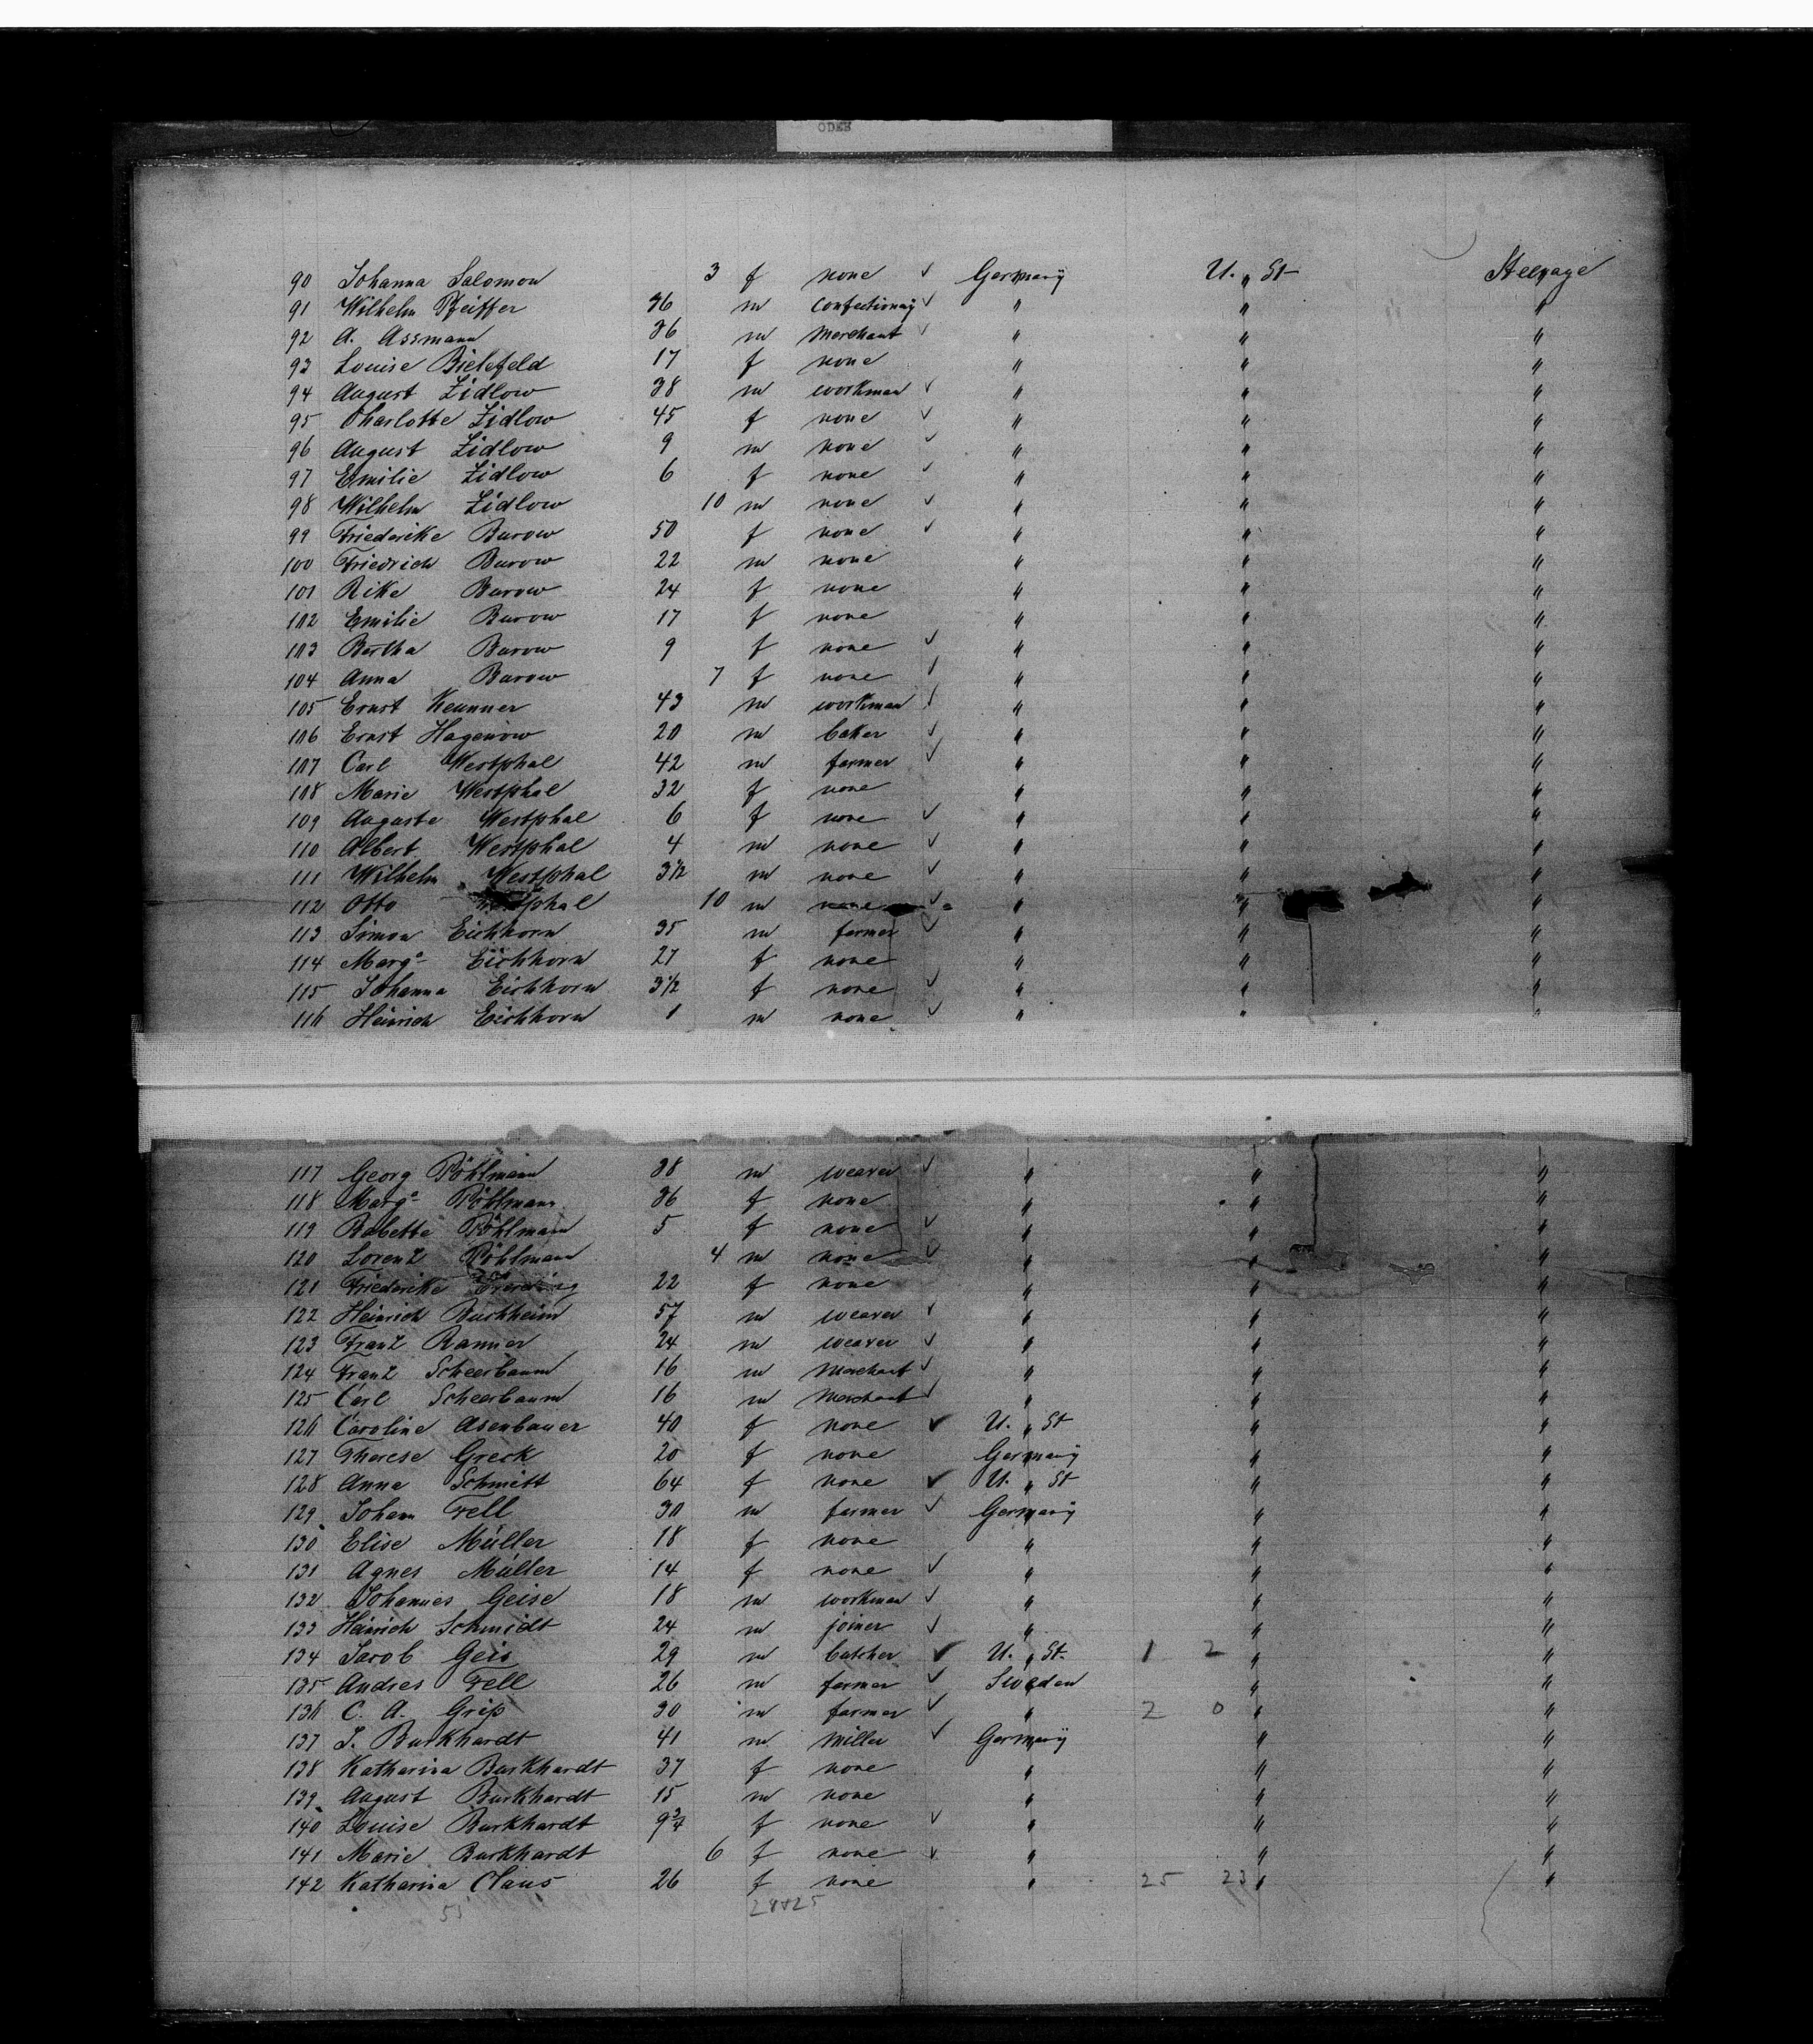 ODES
90 Johanna Salomon 3 f none ✓ Germany U. St Steerage
91 Wilhelm Pfeiffer 36 m Confectionay ✓ " " "
92 A. Assmann 36 m Merchant ✓ " " "
93 Louise Bielefeld 17 f none " " "
94 August Zidlow 38 m workman ✓ " " "
95 Charlotte Zidlow 45 f none ✓ " " "
96 August Zidlow 9 m none ✓ " " "
97 Emilie Zidlow 6 f none ✓ " " "
98 Wilhelm Zidlow 10 m none ✓ " " "
99 Friederike Burow 50 f none ✓ " " "
100 Friedrich Burow 22 m none " " "
101 Rike Burow 24 f none " " "
102 Emilie Burow 17 f none " " "
103 Bertha Burow 9 f none ✓ " " "
104 Anna Burow 7 f none ✓ " " "
105 Ernst 43 m workman ✓ " " "
106 Ernst Hagenow 20 m baker ✓ " " "
107 Carl Westphal 42 m farmer ✓ " " "
108 Marie Westphal 32 f none " " "
109 Auguste Westphal 6 f none ✓ " " "
110 Albert Westphal 4 m none ✓ " " "
111 Wilhelm Westphal 3½ m none ✓ " " "
112 Otto Westphal 10 m none ✓ " " "
113 Simon Eichhorn 35 m farmer ✓ " " "
114 Marga Eichhorn 27 f none " " "
115 Johanna Eichhorn 3½ f none ✓ " " "
116 Heinrich Eichhorn 1 m none ✓ " " "
117 Georg Pöhlmann 38 m weaver ✓ " " "
118 Marga Pöhlmann 36 f none " " "
119 Babette Pöhlmann 5 f none ✓ " " "
120 Lorenz Pöhlmann 4 m none ✓ " " "
121 Friederike 22 f none " " "
122 Heinrich Buchheim 57 m weaver ✓ " " "
123 Franz Ranner 24 m weaver ✓ " " "
124 Franz Scheerbaum 16 m Merchant ✓ " " "
125 Carl Scheerbaum 16 m Merchant ✓ " " "
126 Caroline Asenbauer 40 f none ✓ U. St " "
127 Therese Greck 20 f none Germany " "
128 Anna Schmitt 64 f none ✓ U. St " "
129 Johann Fell 30 m farmer ✓ Germany " "
130 Elise Müller 18 f none " " "
131 Agnes Müller 14 f none ✓ " " "
132 Johannes Geise 18 m workman ✓ " " "
133 Heinrich Schmidt 24 m joiner ✓ " " "
134 Jacob Geis 29 m butcher ✓ U. St. 1 2 " "
135 Andres Fell 26 m farmer ✓ Sweden " "
136 C. A. Grip 30 m farmer ✓ " 2 0 " "
137 J. Burkhardt 41 m miller ✓ Germany " "
138 Katharina Burkhardt 37 f none " " "
139 August Burkhardt 15 m none " " "
140 Louise Burkhardt 9¾ f none ✓ " " "
141 Marie Burkhardt 6 f none ✓ " " "
142 Katharina Claus 26 f none " 25 23 " "